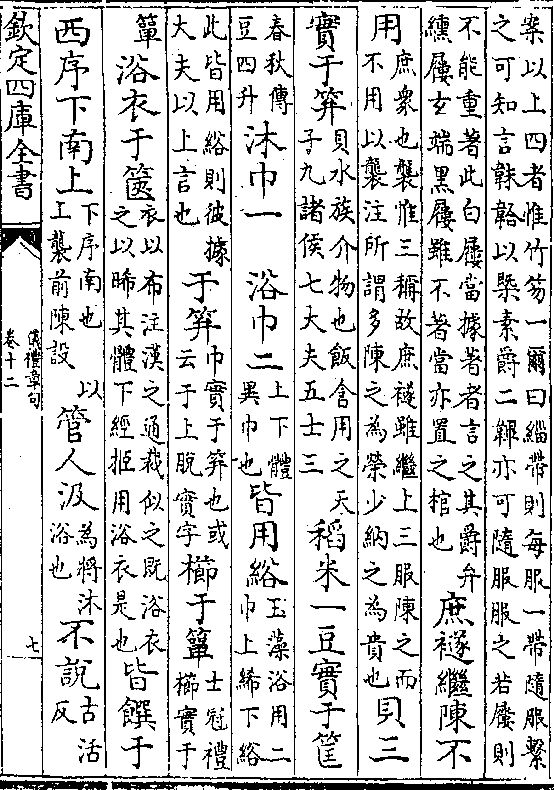 案以上四者惟竹笏一爾曰緇帶則每服一帶隨服繫
之可知言韎韐以槩素爵二韠亦可隨服服之若屨則
不能重著此白屨當據著者言之其爵弁
纁屨玄端黑屨雖不著當亦置之棺也
庶襚繼陳不
用
庶衆也襲惟三稱故庶襚雖繼上三服陳之而
不用以襲注所謂多陳之為榮少納之為貴也
貝三
實于笲
貝水族介物也飯含用之天
子九諸侯七大夫五士三
稻米一豆實于筐
春秋傳
豆四升
沐巾一
浴巾二
上下體
異巾也
皆用綌
玉藻浴用二
巾上絺下綌
此皆用綌則彼據
大夫以上言也
于笲
巾實于笲也或
云于上脫實字
櫛于簞
士冠禮
櫛實于
簞
浴衣于篋
衣以布注漢之通裁似之既浴衣
之以晞其體下經挋用浴衣是也
皆饌于
西序下南上
下序南也
工襲前陳設
以
管人汲
為將沐
浴也
不說
古活
反
欽定四庫全書
儀禮章句
卷十二
七